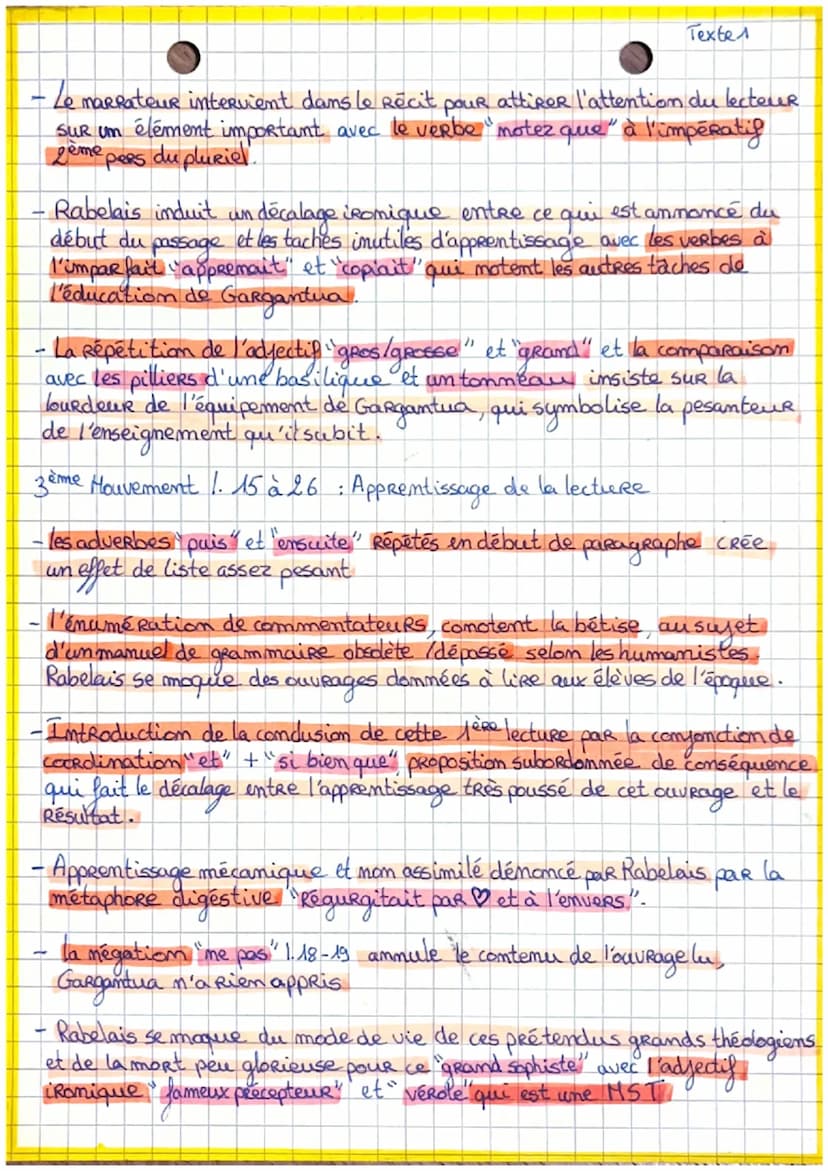 Texte 1
- Le narrateur intervient dans le récit pour attirer l'attention du lecteur
sur un élément important avec le verbe "notez que" à l'impératif
2ème pers du pluriel.
- Rabelais induit un décalage ironique entre ce qui est annoncé du
début du passage et les taches inutiles d'apprentissage avec les verbes à
l'imparfait "apprenait" et "copiait" qui notent les autres tâches de
l'éducation de Gargantua.
- La répétition de l'adjectif "gros/grosse" et "grand" et la comparaison
avec les pilliers d'une basilique et un tonneau insiste sur la
lourdeur de l'équipement de Gargantua, qui symbolise la pesanteur
de l'enseignement qu'il subit.
3ème Mouvement l. 15 à 26 : Apprentissage de la lecture
- les adverbes "puis" et "ensuite" répétés en début de paragraphe crée
un effet de liste assez pesant
- l'énumération de commentateurs, conotent la bêtise, au sujet
d'un manuel de grammaire obsolète /dépassé selon les humanistes.
Rabelais se moque des ouvrages données à lire aux élèves de l'époque.
- Introduction de la conclusion de cette 1ère lecture par la conjonction de
coordination "et" + "si bien que" proposition subordonnée de conséquence
qui fait le décalage entre l'apprentissage très poussé de cet ouvrage et le
résultat.
- Apprentissage mécanique et non assimilé dénoncé par Rabelais par la
métaphore digestive "Régurgitait par ♡ et à l'envers".
- la négation "ne pas" l.18-19 annule le contenu de l'ouvrage lu,
Gargantua n'a rien appris
- Rabelais se moque du mode de vie de ces prétendus grands théologiens
et de la mort peu glorieuse pour ce "grand sophiste" avec l'adjectif
ironique "fameux précepteur" et "vérole" qui est une MST